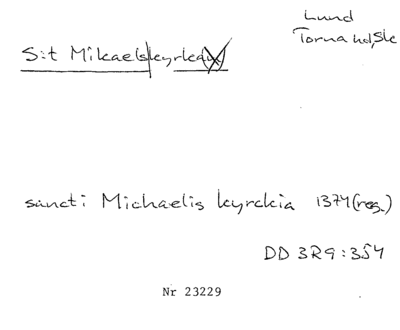 Lund
Torna hd, Sk
S:t Mikaels|kyrka
sancti Michaelis kyrckia 1374 (reg.)
DD 3R9:354
Nr 23229